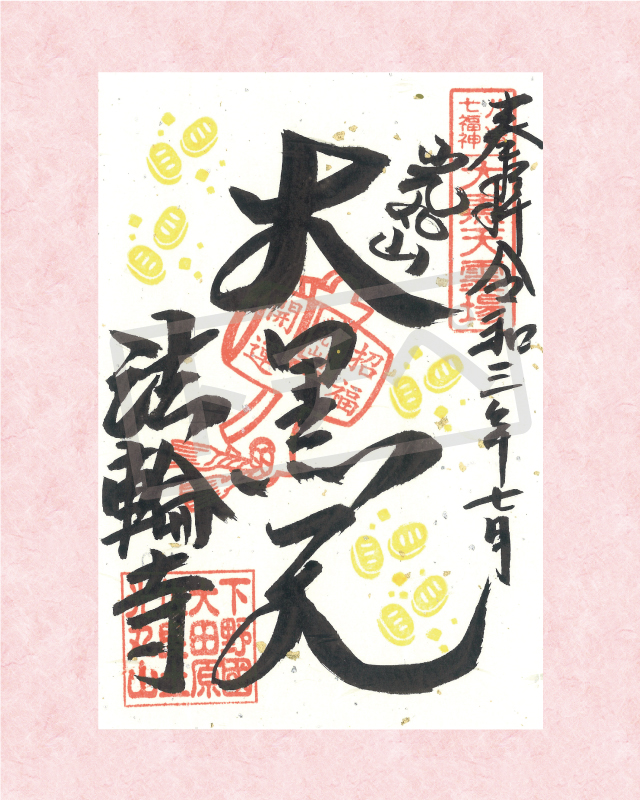 奉拝 令和三年七月
七福神
大黒天靈場
光丸山
大黒天
招福
開運
法輪寺
下野國
大田原
光丸山